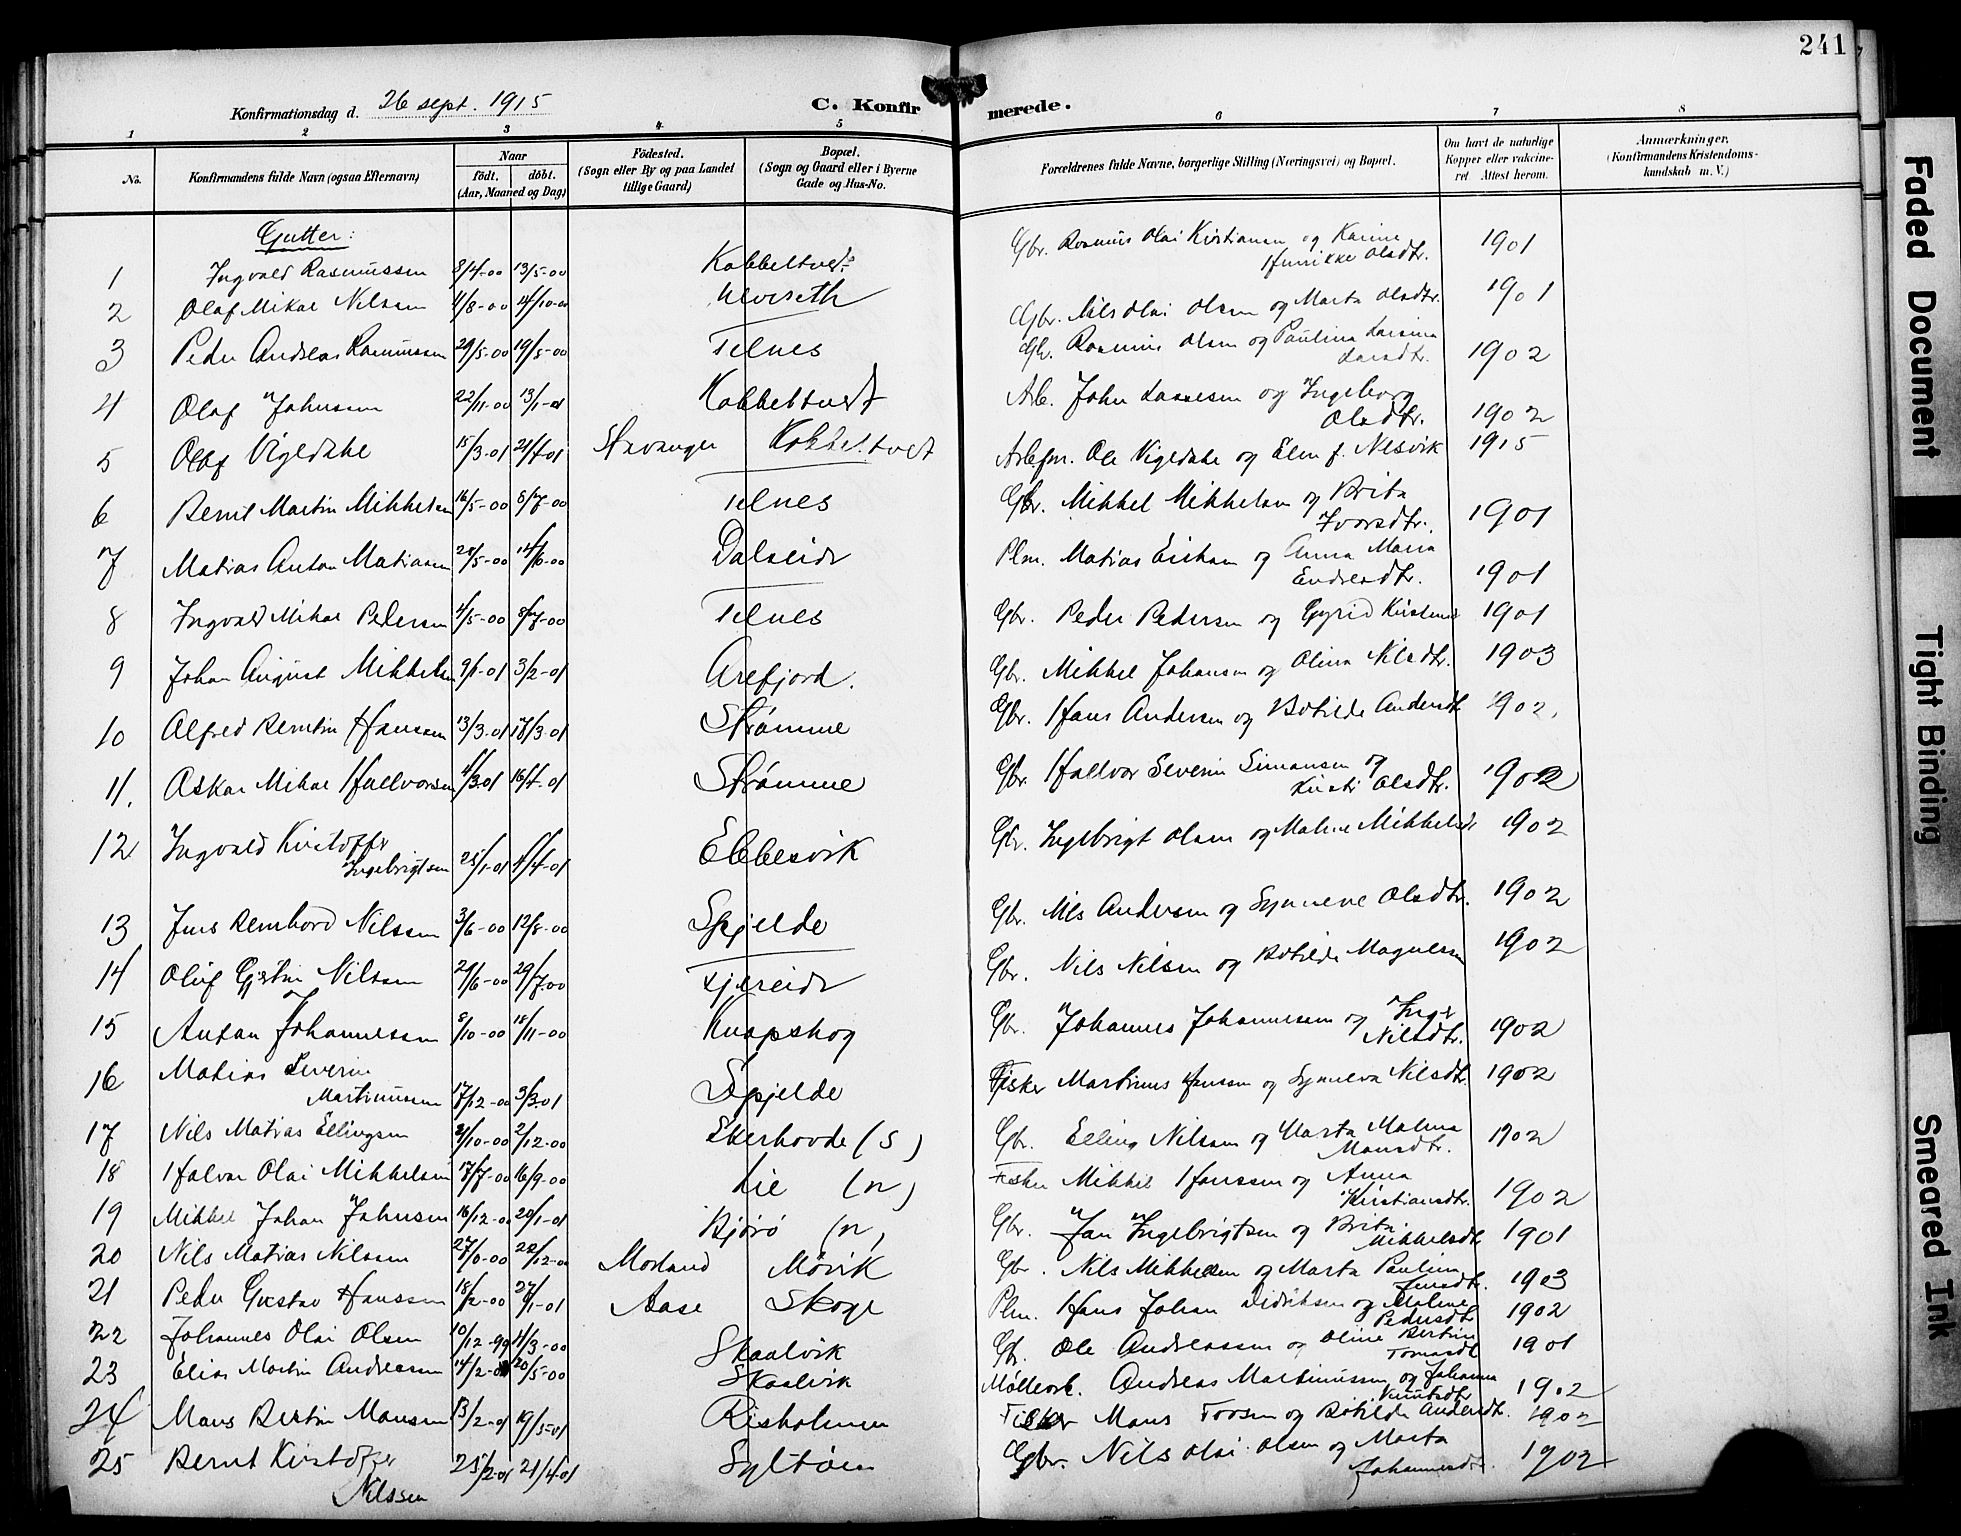 241
Konfirmationsdag d. 26 sept. 1915
C. Konfirmerede.
1 2 3 4 5 6 7 8
No.
Konfirmandens fulde Navn (ogsaa Efternavn)
Naar
födt. döbt.
(Aar, Maaned og Dag)
Födested.
(Sogn eller By og paa Landet tillige Gaard)
Bopæl.
(Sogn og Gaard eller i Byerne Gade og Hus-No.
Forældrenes fulde Navne, borgerlige Stilling (Næringsvei) og Bopæl.
Om havt de naturlige Kopper eller vakcineret Attest herom.
Anmærkninger.
(Konfirmandens Kristendomskundskab m. V.)
Gutter:
1 Ingvald Rasmussen 8/4-00 13/5-00 Kobbeltvet Gbr. Rasmus Olai Kristiansen og Karine Henrikke Olsdtr. 1901
2 Olaf Mikal Nilsen 4/8-00 14/10-00 Ulveseth Gbr. Nils Olai Olsen og Marta Olsdtr. 1901
3 Peder Andreas Rasmussen 29/5-00 19/5-00 Telnes Gbr. Rasmus Olsen og Paulina Larsina Larsdtr. 1902
4 Olaf Johnsen 22/11-00 13/1-01 Kobbeltvedt Arb. John Lassesen og Ingeborg Olsdtr. 1902
5 Olaf Vigedahl 15/3-01 21/4-01 Stavanger Kobbeltvedt Arbfm. Ole Vigedahl og Elen f. Nesvik 1915
6 Bernt Martin Mikkelsen 16/5-00 8/7-00 Telnes Gbr. Mikkel Mikkelsen og Brita Ivarsdtr. 1901
7 Matias Anton Matiasen 28/5-00 14/6-00 Dalseide Plm. Matias Eriksen og Anna Maria Endresdtr. 1901
8 Ingvald Mikal Pedersen 4/5-00 8/7-00 Telnes Gbr. Peder Pedersen og Gyrid Kristens 1901
9 Johan August Mikkelsen 9/1-01 3/2-01 Arefjord. Gbr. Mikkel Johansen og Olina Nilsdtr. 1903
10 Alfred Berntin Hanssen 13/3-01 17/3-01 Strømme Gbr. Hans Andersen og Botilde Andersdt 1902
11. Oskar Mikal Hallvorsen 4/3-01 16/4-01 Strømme Gbr. Hallvor Severin Simonsen og Kirsti Olsdtr. 1902
12 Ingvald Kristoffer Ingebrigtsen 25/1-01 4/4-01 Ebbesvik Gbr. Ingebrigt Olsen og Malene Mikkelsdt 1902
13 Jens Bernhard Nilsen 3/6-00 12/8-00 Spjelde Gbr. Nils Andersen og Synneve Olsdtr. 1902
14 Oluf Gjertin Nilsen 29/6-00 29/7-00 Fjereide Gbr. Nils Nilsen og Botilde Magnesen 1902
15 Anton Johannessen 8/10-00 18/11-00 Knapskog Gbr. Johannes Johannessen og Inger Nilsdtr. 1902
16 Matias Severin Martinussen 17/12-00 3/3-01 Spjelde Fisker Martinus Hanssen og Synneva Nilsdtr 1902
17 Nils Matias Ellingsen 2/10-00 2/12-00 Ekerhovde (S) Gbr. Elling Nilsen og Marta Malena Monsdtr. 1902
18 Halvor Olai Mikkelsen 17/7-00 16/9-00 Lie (n) Fisker Mikkel Hanssen og Anna Kristiansdtr. 1902
19 Mikkel Johan Johnsen 16/12-00 20/1-01 Bjørø (n) Gbr. Jan Ingebrigtsen og Brita Mikkelsdtr 1901
20 Nils Matias Nilsen 27/10-00 22/12-00 Morland Møvik Gbr. Nils Mikkelsen og Marta Paulina Jensdtr. 1903
21 Peder Gustav Hanssen 18/12-00 27/1-01 Aase Skoge Plm. Hans Johan Didriksen og Malene Pedersdtr 1902
22 Johannes Olai Olsen 10/12-99 4/3-00 Skaalvik Gbr. Ole Andreassen og Oline Bertina Tomasdt 1901
23 Elias Martin Andreassen 14/2-00 20/5-00 Skaalvik Møllearb. Andreas Martinussen og Johanna Knutsdtr 1902
24 Mons Bertin Monsen 13/2-01 19/5-01 Risholmen Fisker Mons Torsen og Botilde Andersdtr. 1902
25 Bernt Kristoffer Nilssen 25/2-01 21/4-01 Syltøen Gbr. Nils Olai Olsen og Marta Johannesdtr. 1902
Faded Document
Tight Binding
Smeared Ink